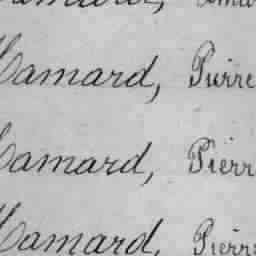 Hamard, Pierre
Hamard, Pierr
Hamard, Pierre